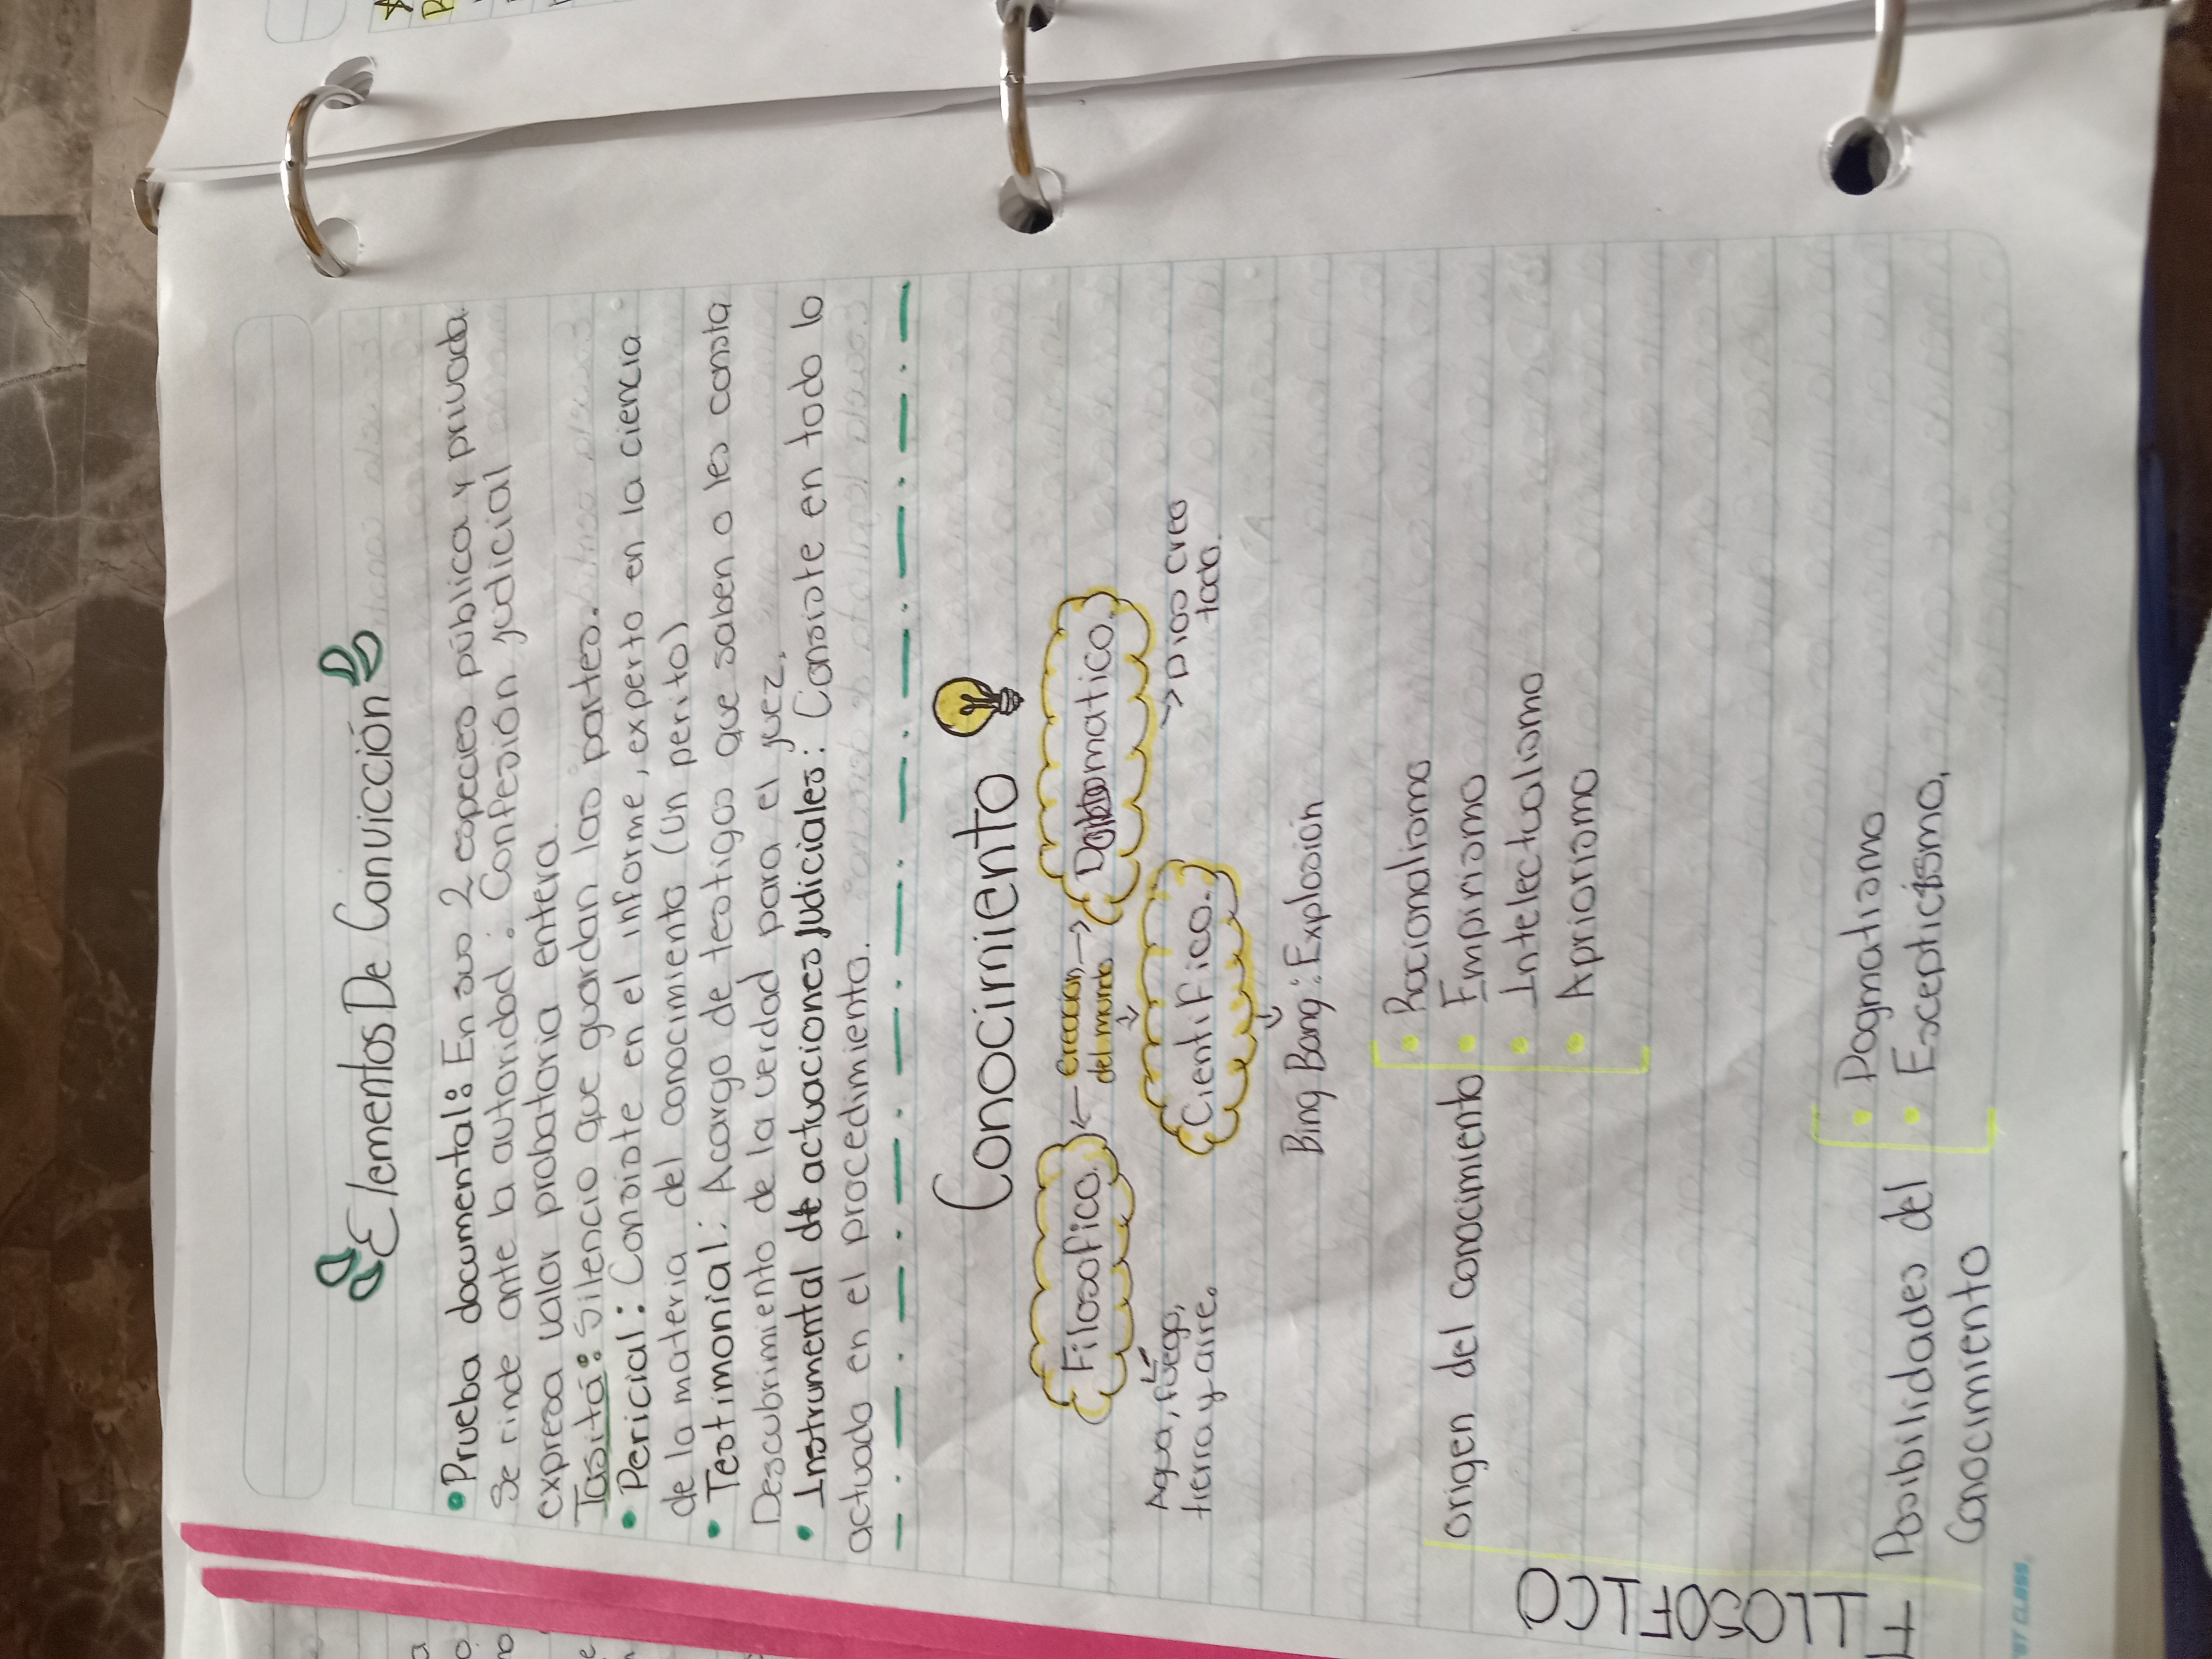 Elementos De Convicción
• Prueba documental: En sus 2 especies pública y privada.
Se rinde ante la autoridad: Confesión judicial
expresa valor probatoria entera
Tasita: Silencio que guardan las partes.
• Pericial: Consiste en el informe, experto en la ciencia
de la materia del conocimiento (un perito)
• Testimonial: Acargo de testigos que saben o les consta
Descubrimiento de la verdad para el juez.
• Instrumental de actuaciones judiciales: Consiste en todo lo
actuado en el procedimiento.
Conocimiento
Filosofico. ← creacion → matico.
del mundo
Agua, fuego, Cientifico. → Dios creo
tierra y aire. todo.
Bing Bang: Explosión
FILOSOFICO
origen del conocimiento
• Racionalismo
• Empirismo
• Intelectualismo
• Apriorismo
Posibilidades del
Conocimiento
• Dogmatismo
• Escepticismo.